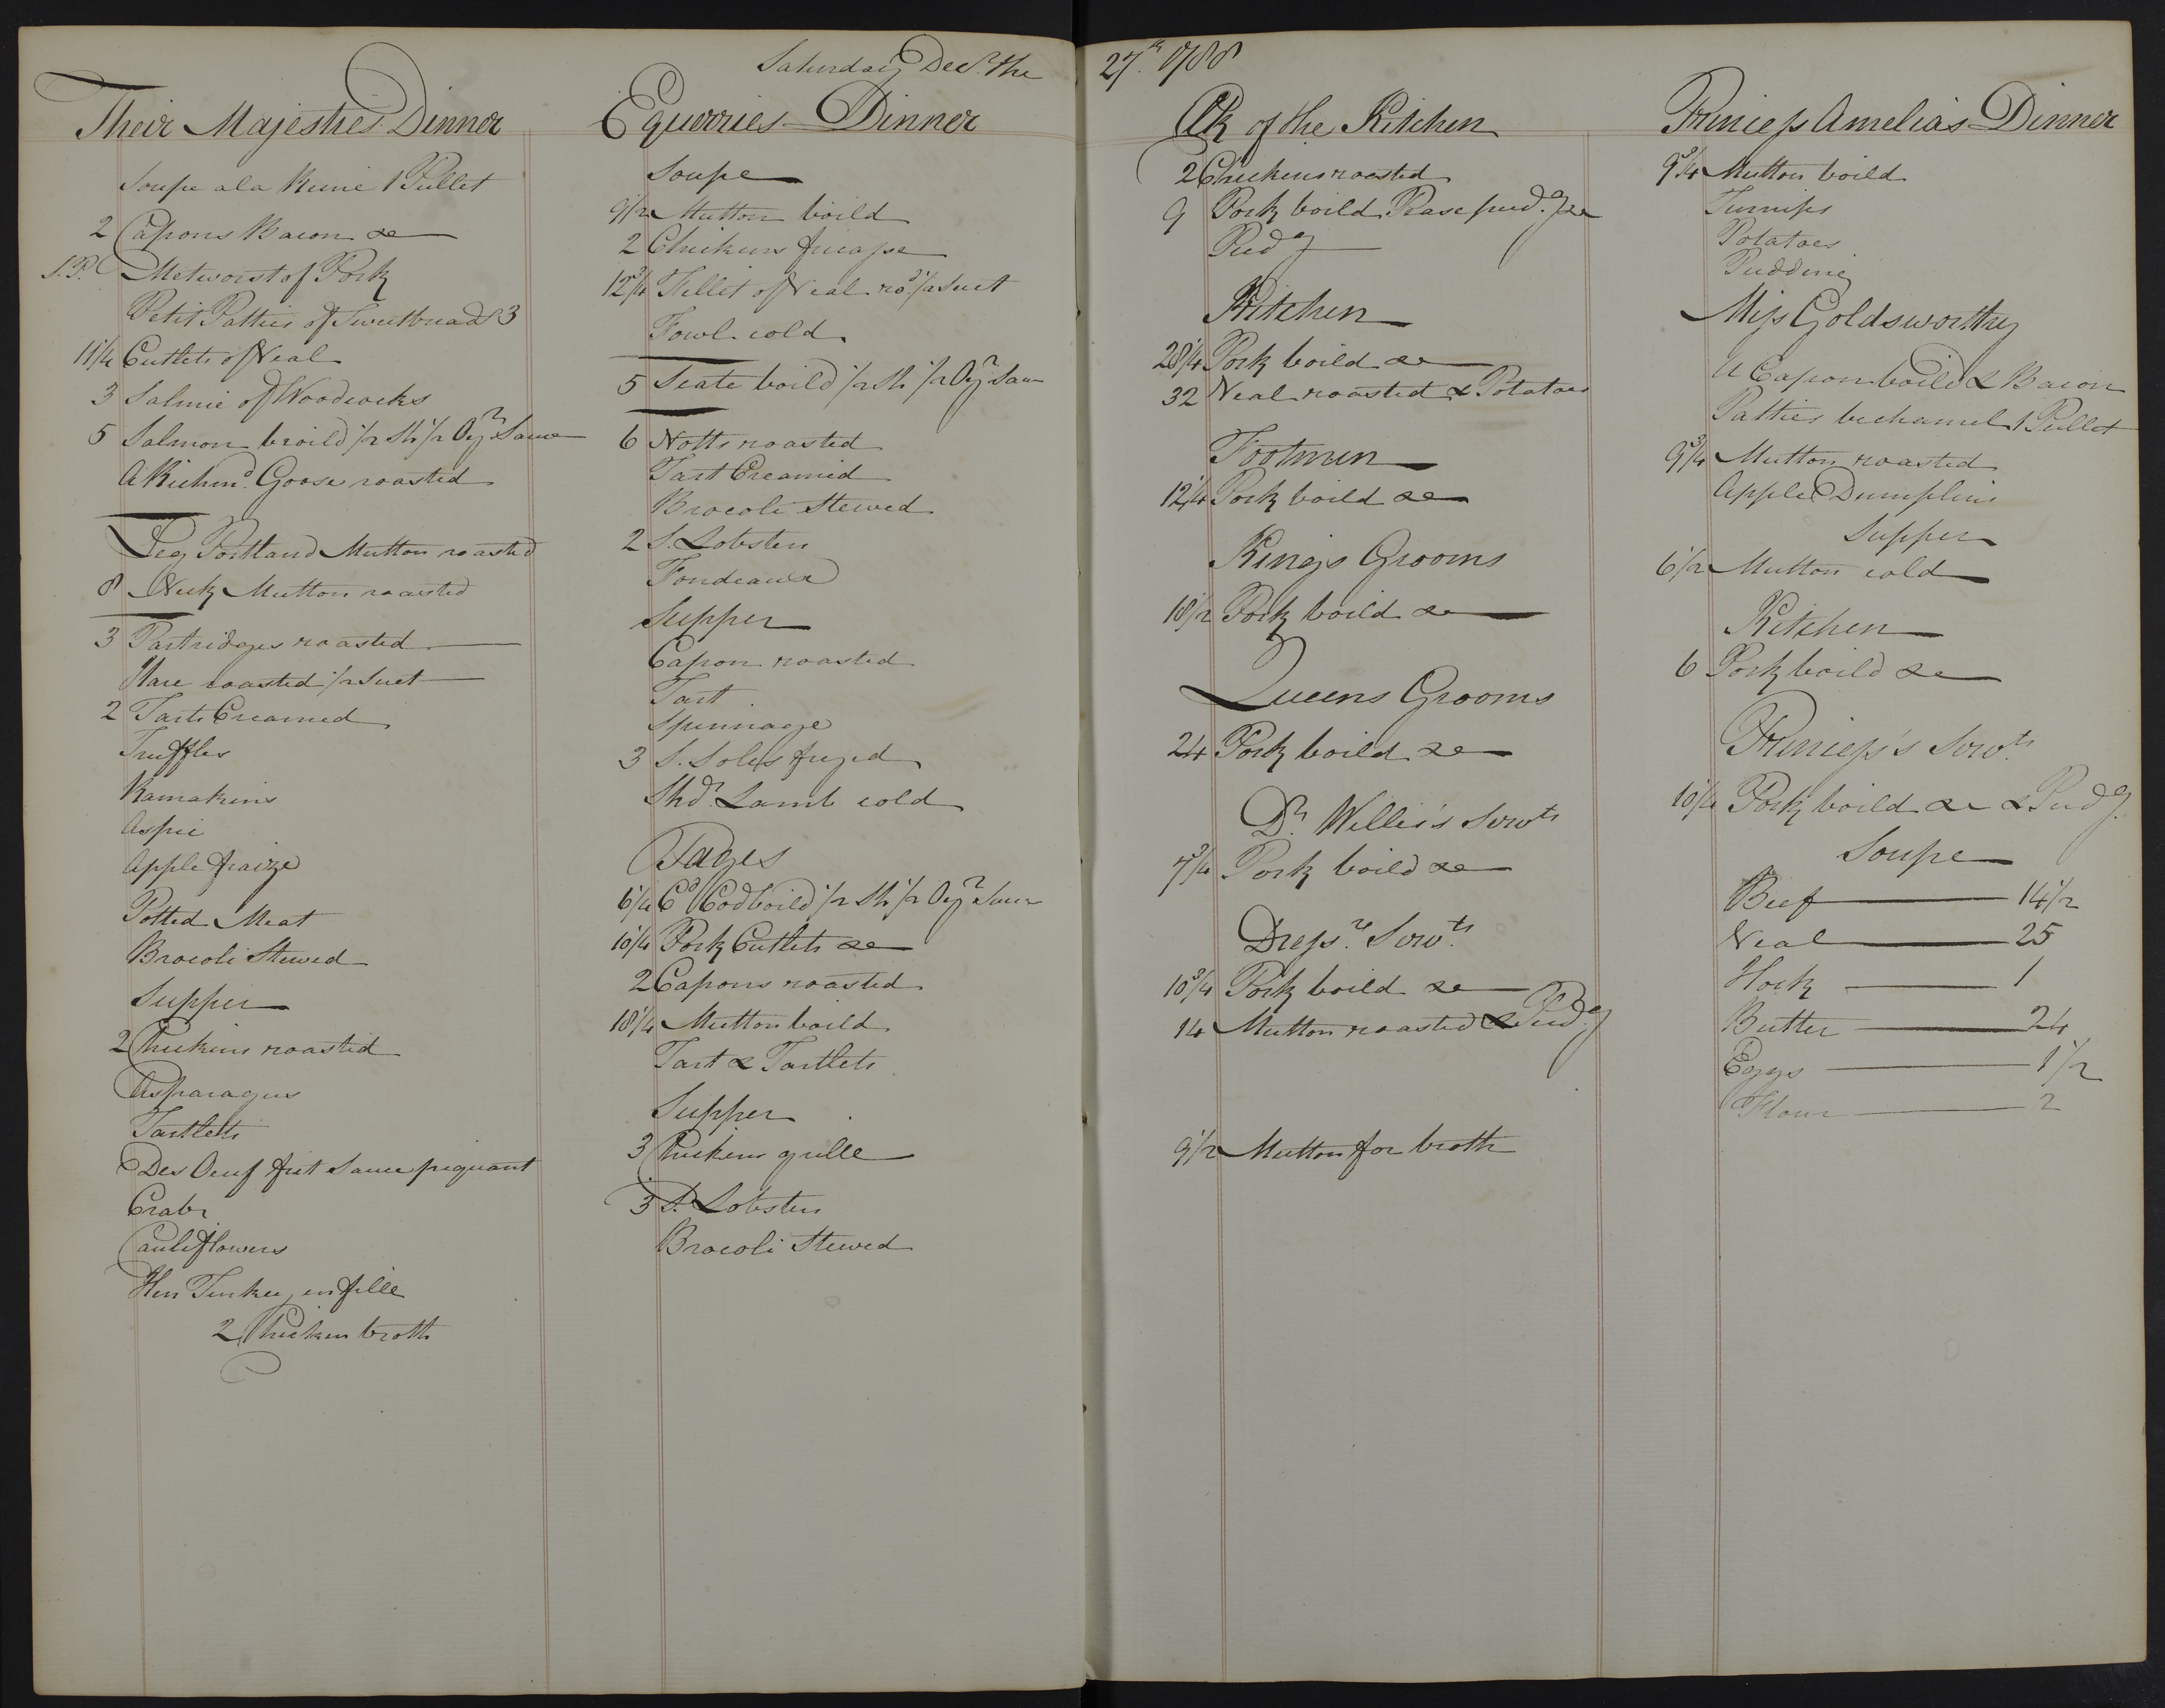 Saturday Decr. the 27th. 1788
Their Majesties Dinner
Soupe a la Reine 1 Pullet
2 Capons Bacon &c
S.P. Metworst of Pork
Petit Patties of Sweetbreads 3
11 1/4 Cutlets of Veal
3 Salmie of Woodcocks
5 Salmon broild 1/2 Sh 1/2 Oyr Sauce
A Richmd. Goose roasted
Leg Portland Mutton roasted
8 Neck Mutton roasted
3 Partridges roasted
Hare roasted 1/2 Suet
2 Tarts Creamed
Truffles
Ramakins
Aspic
Apple fraize
Potted Meat
Brocoli Stewed
Supper
2 Chickens roasted
Asparagus
Tartletts
Des Oeuf frit Sauce piquant
Crabs
Cauliflowers
Hen Turkey en
2 Chicken broth
Equerries Dinner
Soupe
9 1/2 Mutton boild
2 Chickens fricasse
12 3/4 Fillet of Veal rod. 1/2 Suet
Fowl cold
5 Scate boild 1/2 Sh 1/2 Oyr Sau
6 Notts roasted
Tart Creamed
Brocoli Stewed
2 S. Lobsters
Fondeaux
Supper
Capon roasted
Tart
Spinnage
3 S. Soles fryed
Shdr. Lamb cold
Pages
6 1/4 Cd Cod boild 1/2 Sh 1/2 Oyr Sauce
10 1/4 Pork Cutlets &c
2 Capons roasted
18 1/4 Mutton boild
Tart & Tartlets
Supper
3 Chickens grille
3 S. Lobsters
Brocoli Stewed
Clk of the Kitchen
2 Chickens roasted
9 Pork boild Pease pudg. &c
Pudg
Kitchen
28 1/4 Pork boild &c
32 Veal roasted & Potatoes
Footmen
12 1/4 Pork boild &c
Kings Grooms
18 1/2 Pork boild &c
Queens Grooms
24 Pork boild &c
Dr. Willis's Servts
7 3/4 Pork boild &c
Dressrs. Servts.
10 3/4 Pork boild &c
14 Mutton roasted & Pudg.
9 1/2 Mutton for broth
Princess Amelias Dinner
9 3/4 Mutton boild
Turnips
Potatoes
Pudding
Miss Goldsworthy
A Capon boild & Bacon
Patties bechamel 1 Pullet
9 3/4 Mutton roasted
Apple Dumplins
Supper
6 1/2 Mutton cold
Kitchen
6 Pork boild &c
Princess's Servts.
10 1/4 Pork boild &c & Pudg.
Soupe
Beef 14 1/2
Veal 25
Hock 1
Butter 24
Eggs 1 1/2
Flour 2